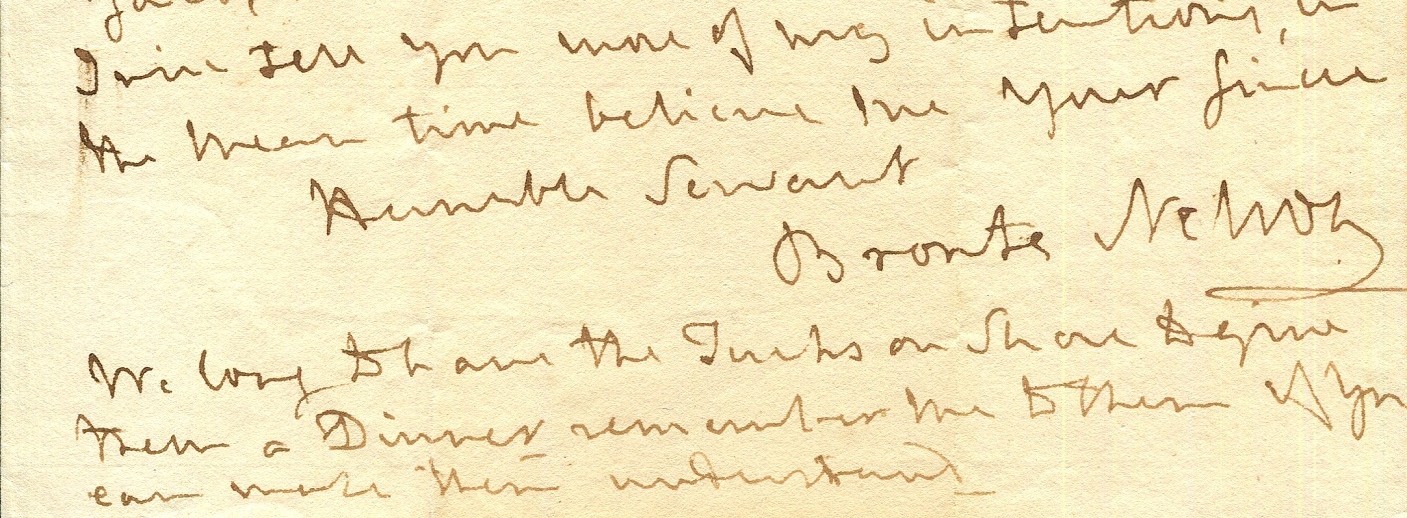 I will tell you more of my intentions, in
the mean time believe me your Sincere
Humble Servant
Bronte Nelson
We long to have the Turks on Shore to give
them a Dinner remember me to them if you
can make them understand